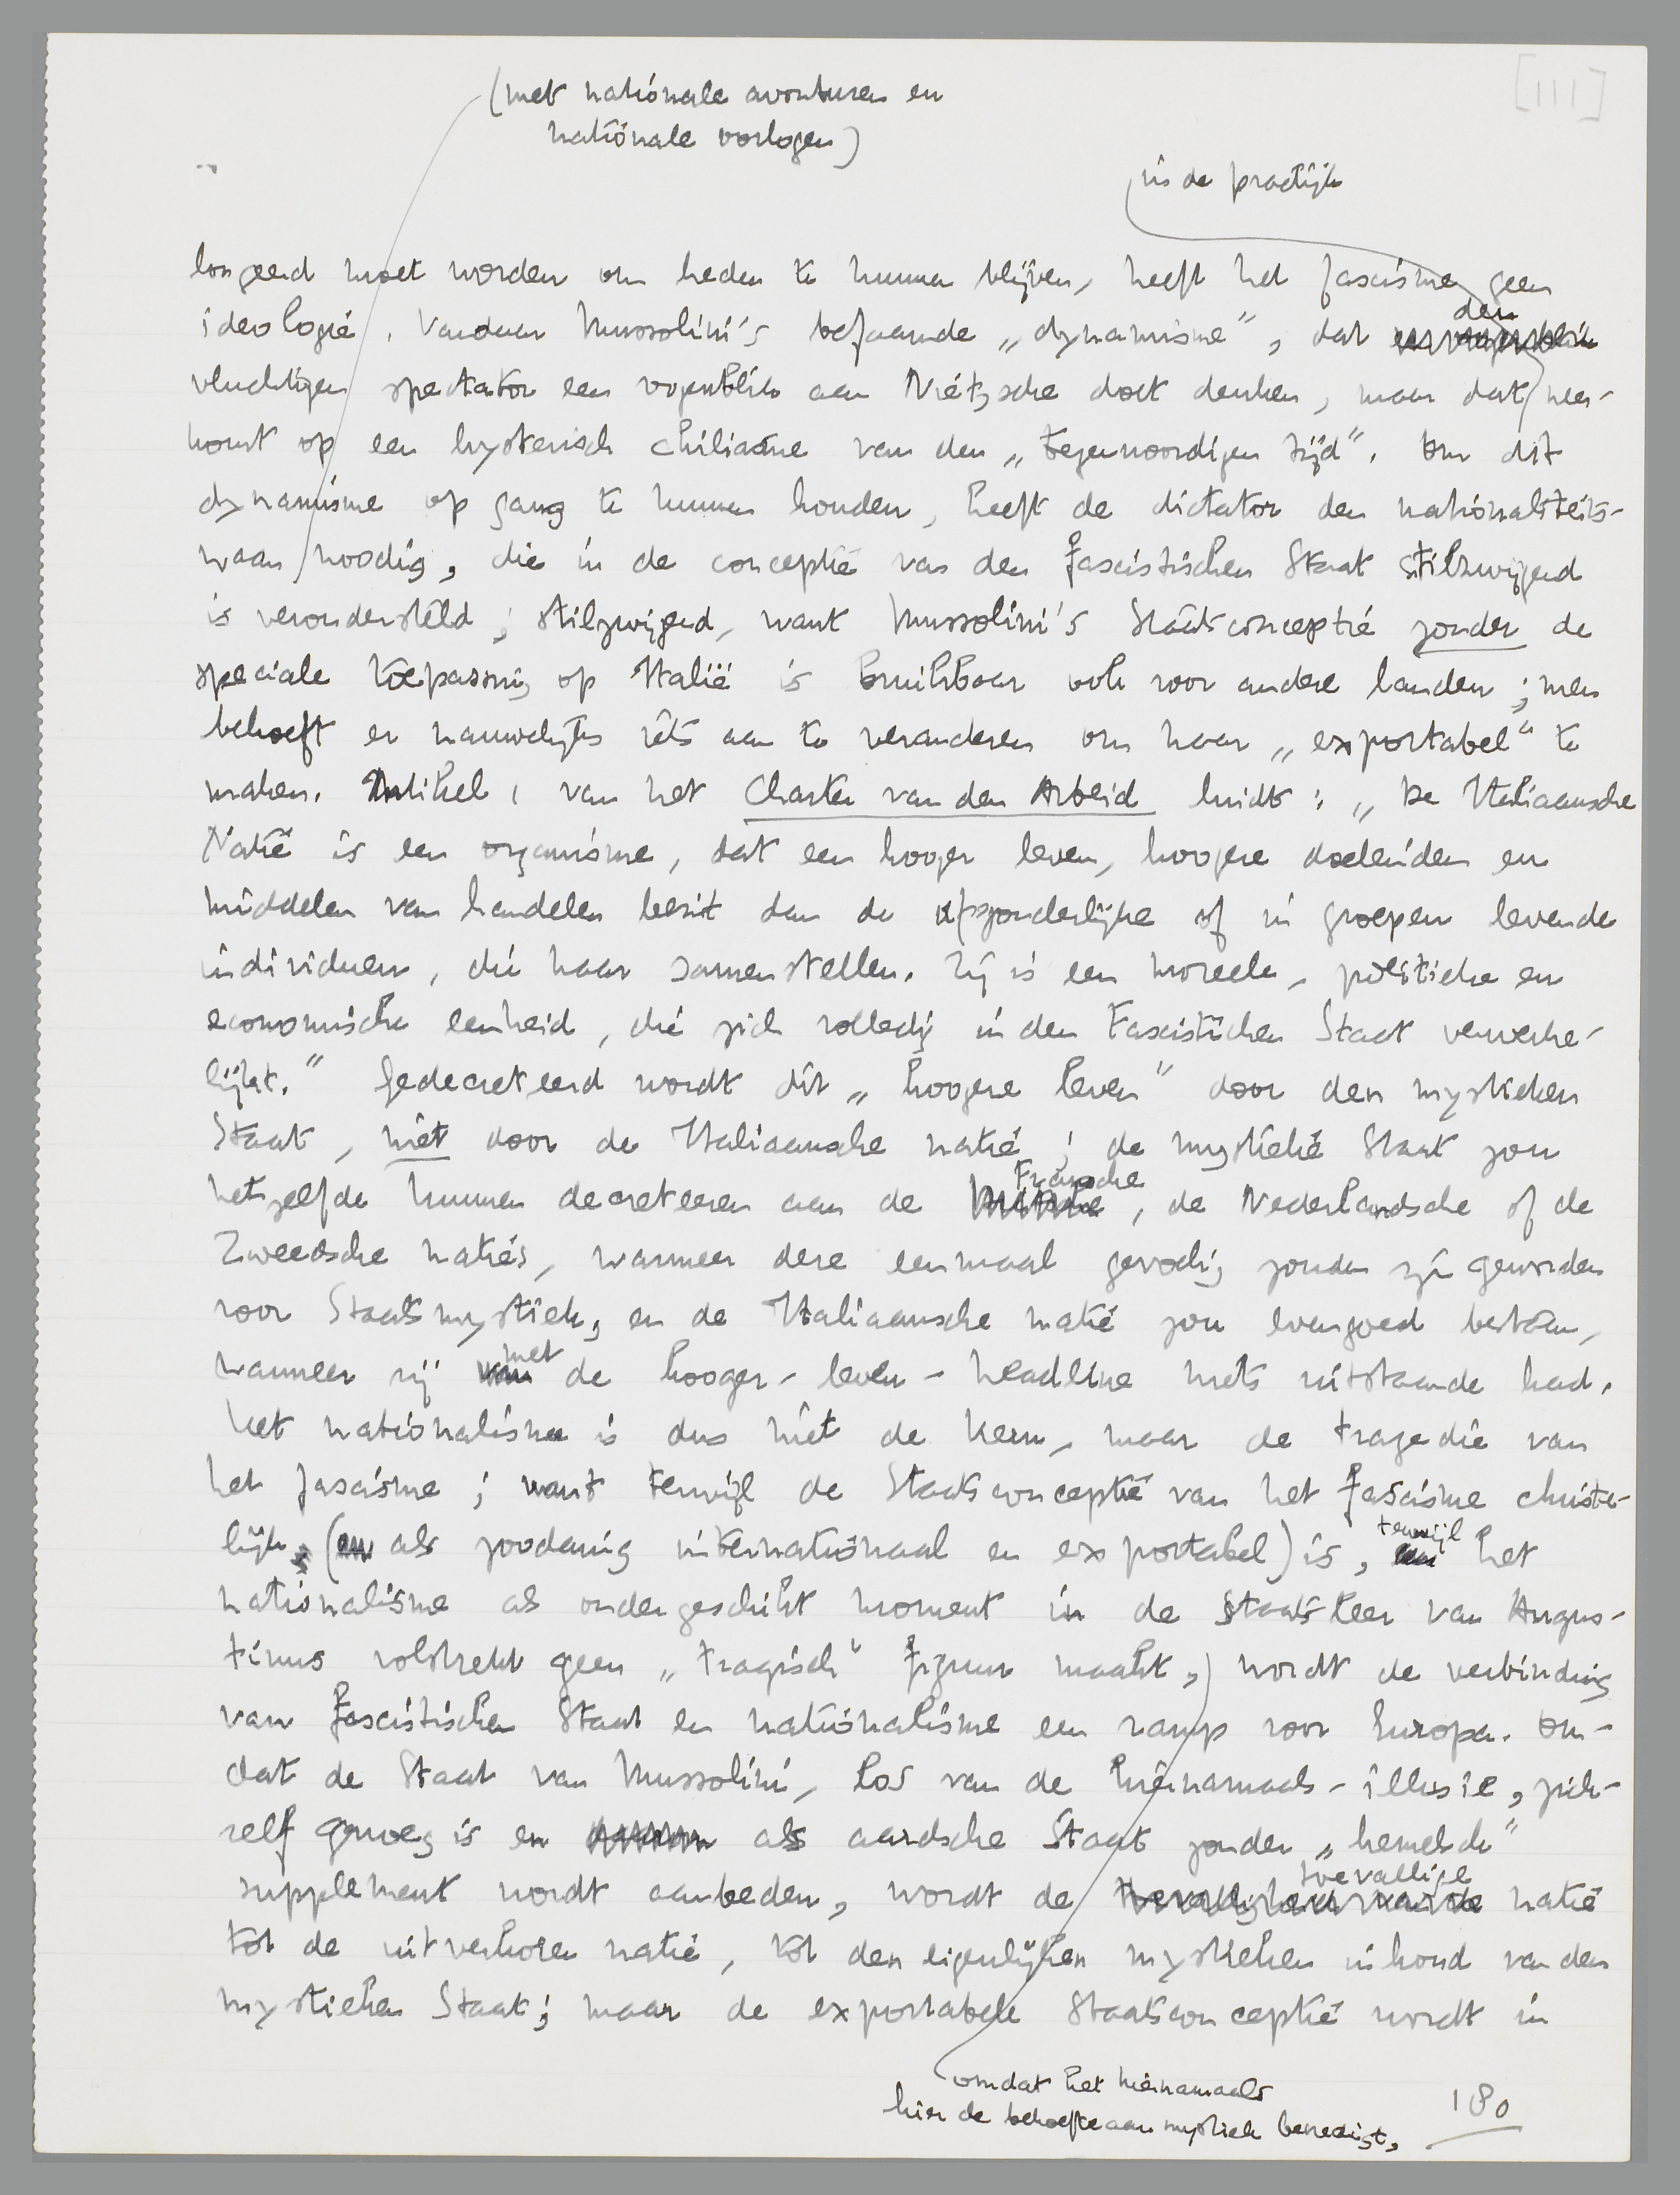 [111]
(met nationale avonturen en
nationale oorlogen)
in de practijk
loogend moet worden om heden te kunnen blijven, heeft het fascisme geen
ideologie. Vandaar Mussolini's befaamde „dynamisme", dat den
vluchtigen spectator een oogenblik aan Nietzsche doet denken, maar dat neer-
komt op een hysterisch chiliasme van den „tegenwoordigen tijd". Om dit
dynamisme op gang te kunnen houden, heeft de dictator den nationaliteits-
waan noodig, die in de conceptie van den fascistischen Staat stilzwijgend
is verondersteld; stilzwijgend, want Mussolini's Staatsconceptie zonder de
speciale toepassing op Italië is bruikbaar ook voor andere landen; men
behoeft er nauwelijks iets aan te veranderen om haar „exportabel" te
maken. Artikel 1 van het Charter van den Arbeid luidt: „De Italiaansche
Natie is een organisme, dat een hooger leven, hoogere doeleinden en
middelen van handelen bezit dan de afzonderlijke of in groepen levende
individuen, die haar samenstellen. Zij is een moreele, politieke en
economische eenheid, die zich volledig in den Fascistischen Staat verwerke-
lijkt." Gedecreteerd wordt dit „hoogere leven" door den mystieken
Staat, niet door de Italiaansche natie; de mystieke Staat zou
hetzelfde kunnen decreteeren aan de Fransche, de Nederlandsche of de
Zweedsche naties, wanneer deze eenmaal gevoelig zouden zijn geworden
voor Staatsmystiek, en de Italiaansche natie zou evengoed bestaan,
wanneer zij met de hooger-leven-headline niets uitstaande had.
Het nationalisme is dus niet de kern, maar de tragedie van
het fascisme; want terwijl de Staatsconceptie van het fascisme christe-
lijk (en als zoodanig internationaal en exportabel) is, terwijl het
nationalisme als ondergeschikt moment in de Staatsleer van Augus-
tinus volstrekt geen „tragisch" figuur maakt, wordt de verbinding
van fascistischen Staat en nationalisme een ramp voor Europa. Om-
dat de Staat van Mussolini, los van de hiernamaals-illusie, zich-
zelf genoeg is en als aardsche Staat zonder „hemelsch"
supplement wordt aanbeden, wordt de toevallige natie
tot de uitverkoren natie, tot den eigenlijken mystieken inhoud van den
mystieken Staat; maar de exportabele Staatsconceptie wordt in
omdat het hiernamaals
hier de behoefte aan mystiek bevredigt,
180